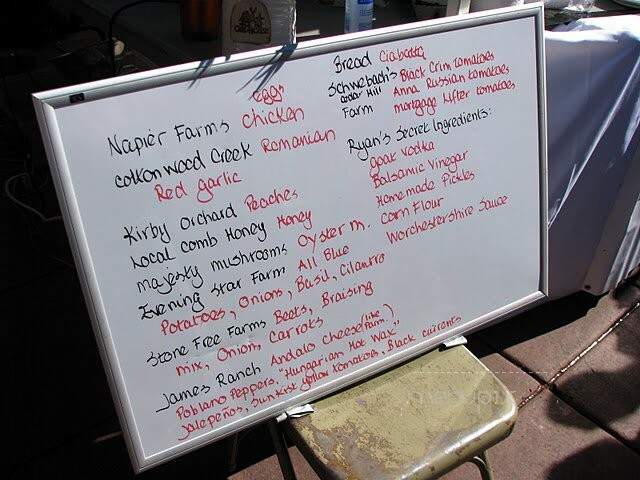 eggs
Napier Farms chicken
cottonwood Creek Romanian
Red garlic
Kirby Orchard Peaches
Local comb Honey Honey
majesty mushrooms Oyster m.
Evening Star Farm All Blue
Potatoes, Onions, Basil, Cilantro
Stone Free Farms Beets, Braising
mix, Onion, Carrots
James Ranch Andalo cheese (like Parm.)
Poblano Peppers, "Hungarian Hot Wax"
Jalepeños, Sunkist yellow tomatoes, Black currents
Bread Ciabatta
Schwebach's Black Crim tomatoes
Cedar Hill Anna Russian tomatoes
Farm mortgage lifter tomatoes
Ryan's Secret Ingredients:
goat vodka
Balsamic Vinegar
Homemade Pickles
corn Flour
Worchestershire Sauce